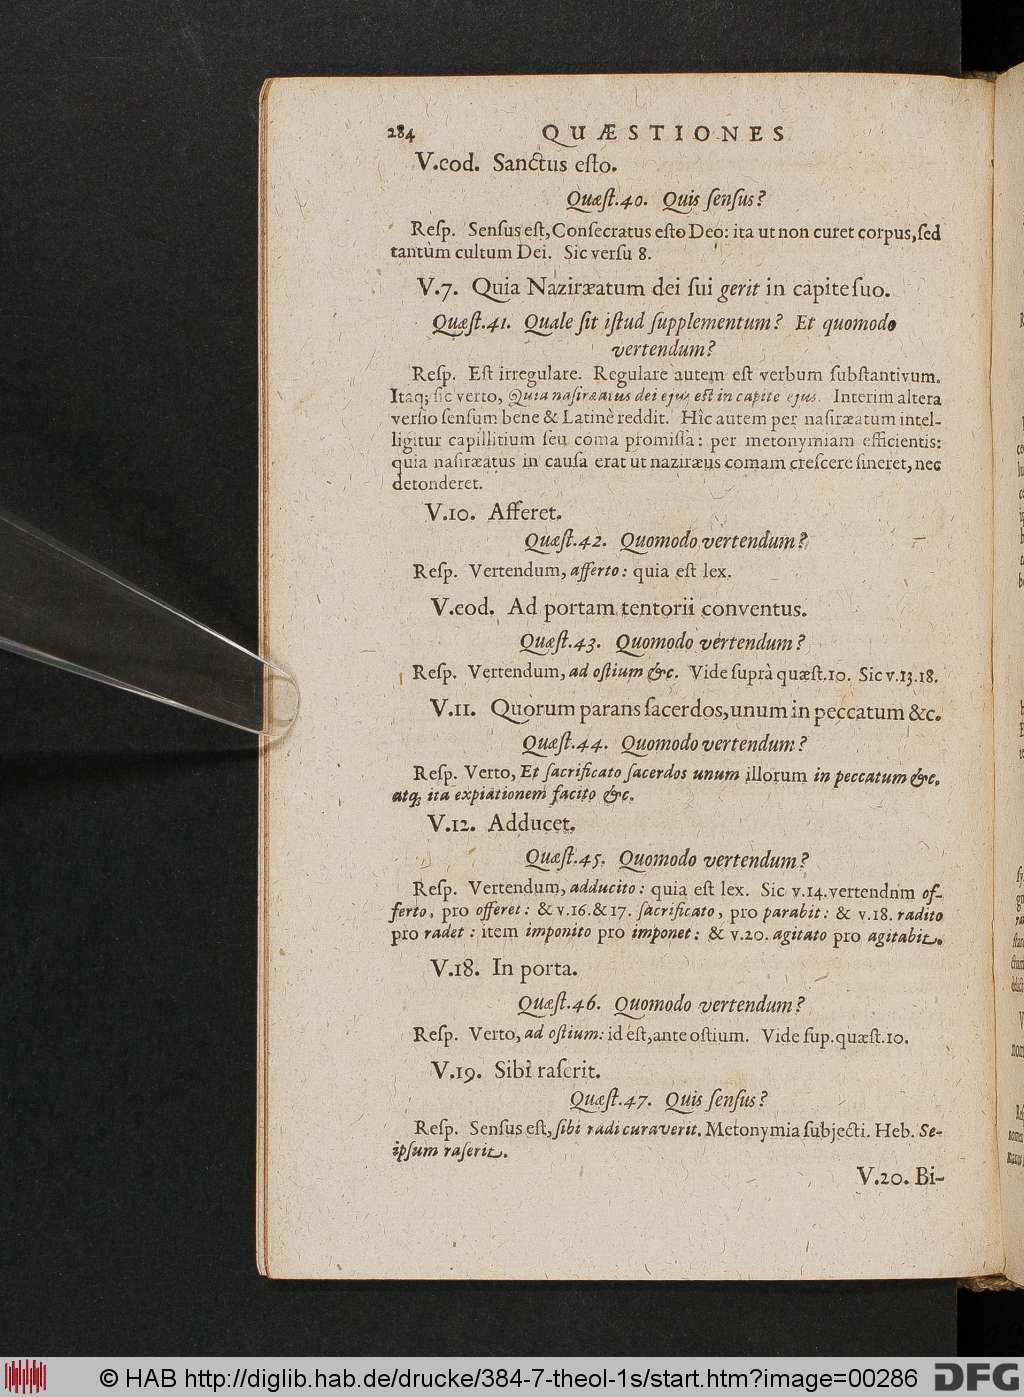 284 QUÆSTIONES
V.eod. Sanctus eſto.
Quæſt.40. Quis ſenſus?
Reſp. Senſus eſt, Conſecratus eſto Deo: ita ut non curet corpus, ſed
tantùm cultum Dei. Sic verſu 8.
V.7. Quia Naziræatum dei ſui gerit in capite ſuo.
Quæſt.41. Quale ſit iſtud ſupplementum? Et quomodo
vertendum?
Reſp. Eſt irregulare. Regulare autem eſt verbum ſubſtantivum.
Itaq; ſic verto, Quia naſiræatus dei ejus eſt in capite ejus. Interim altera
verſio ſenſum bene & Latinè reddit. Hîc autem per naſiræatum intel-
ligitur capillitium ſeu coma promiſſa: per metonymiam efficientis:
quia naſiræatus in cauſa erat ut naziræus comam creſcere ſineret, nec
detonderet.
V.10. Afferet.
Quæſt.42. Quomodo vertendum?
Reſp. Vertendum, afferto: quia eſt lex.
V.eod. Ad portam tentorii conventus.
Quæſt.43. Quomodo vertendum?
Reſp. Vertendum, ad oſtium &c. Vide ſuprà quæſt.10. Sic v.13.18.
V.11. Quorum parans ſacerdos, unum in peccatum &c.
Quæſt.44. Quomodo vertendum?
Reſp. Verto, Et ſacrificato ſacerdos unum illorum in peccatum &c.
atq; ita expiationem facito &c.
V.12. Adducet.
Quæſt.45. Quomodo vertendum?
Reſp. Vertendum, adducito: quia eſt lex. Sic v.14. vertendnm of-
ferto, pro offeret: & v.16.&17. ſacrificato, pro parabit: & v.18. radito
pro radet: item imponito pro imponet: & v.20. agitato pro agitabit.
V.18. In porta.
Quæſt.46. Quomodo vertendum?
Reſp. Verto, ad oſtium: id eſt, ante oſtium. Vide ſup. quæſt.10.
V.19. Sibi raſerit.
Quæſt.47. Quis ſenſus?
Reſp. Senſus eſt, ſibi radi curaverit. Metonymia ſubjecti. Heb. Se-
ipſum raſerit.
V.20. Bi-
© HAB http://diglib.hab.de/drucke/384-7-theol-1s/start.htm?image=00286 DFG